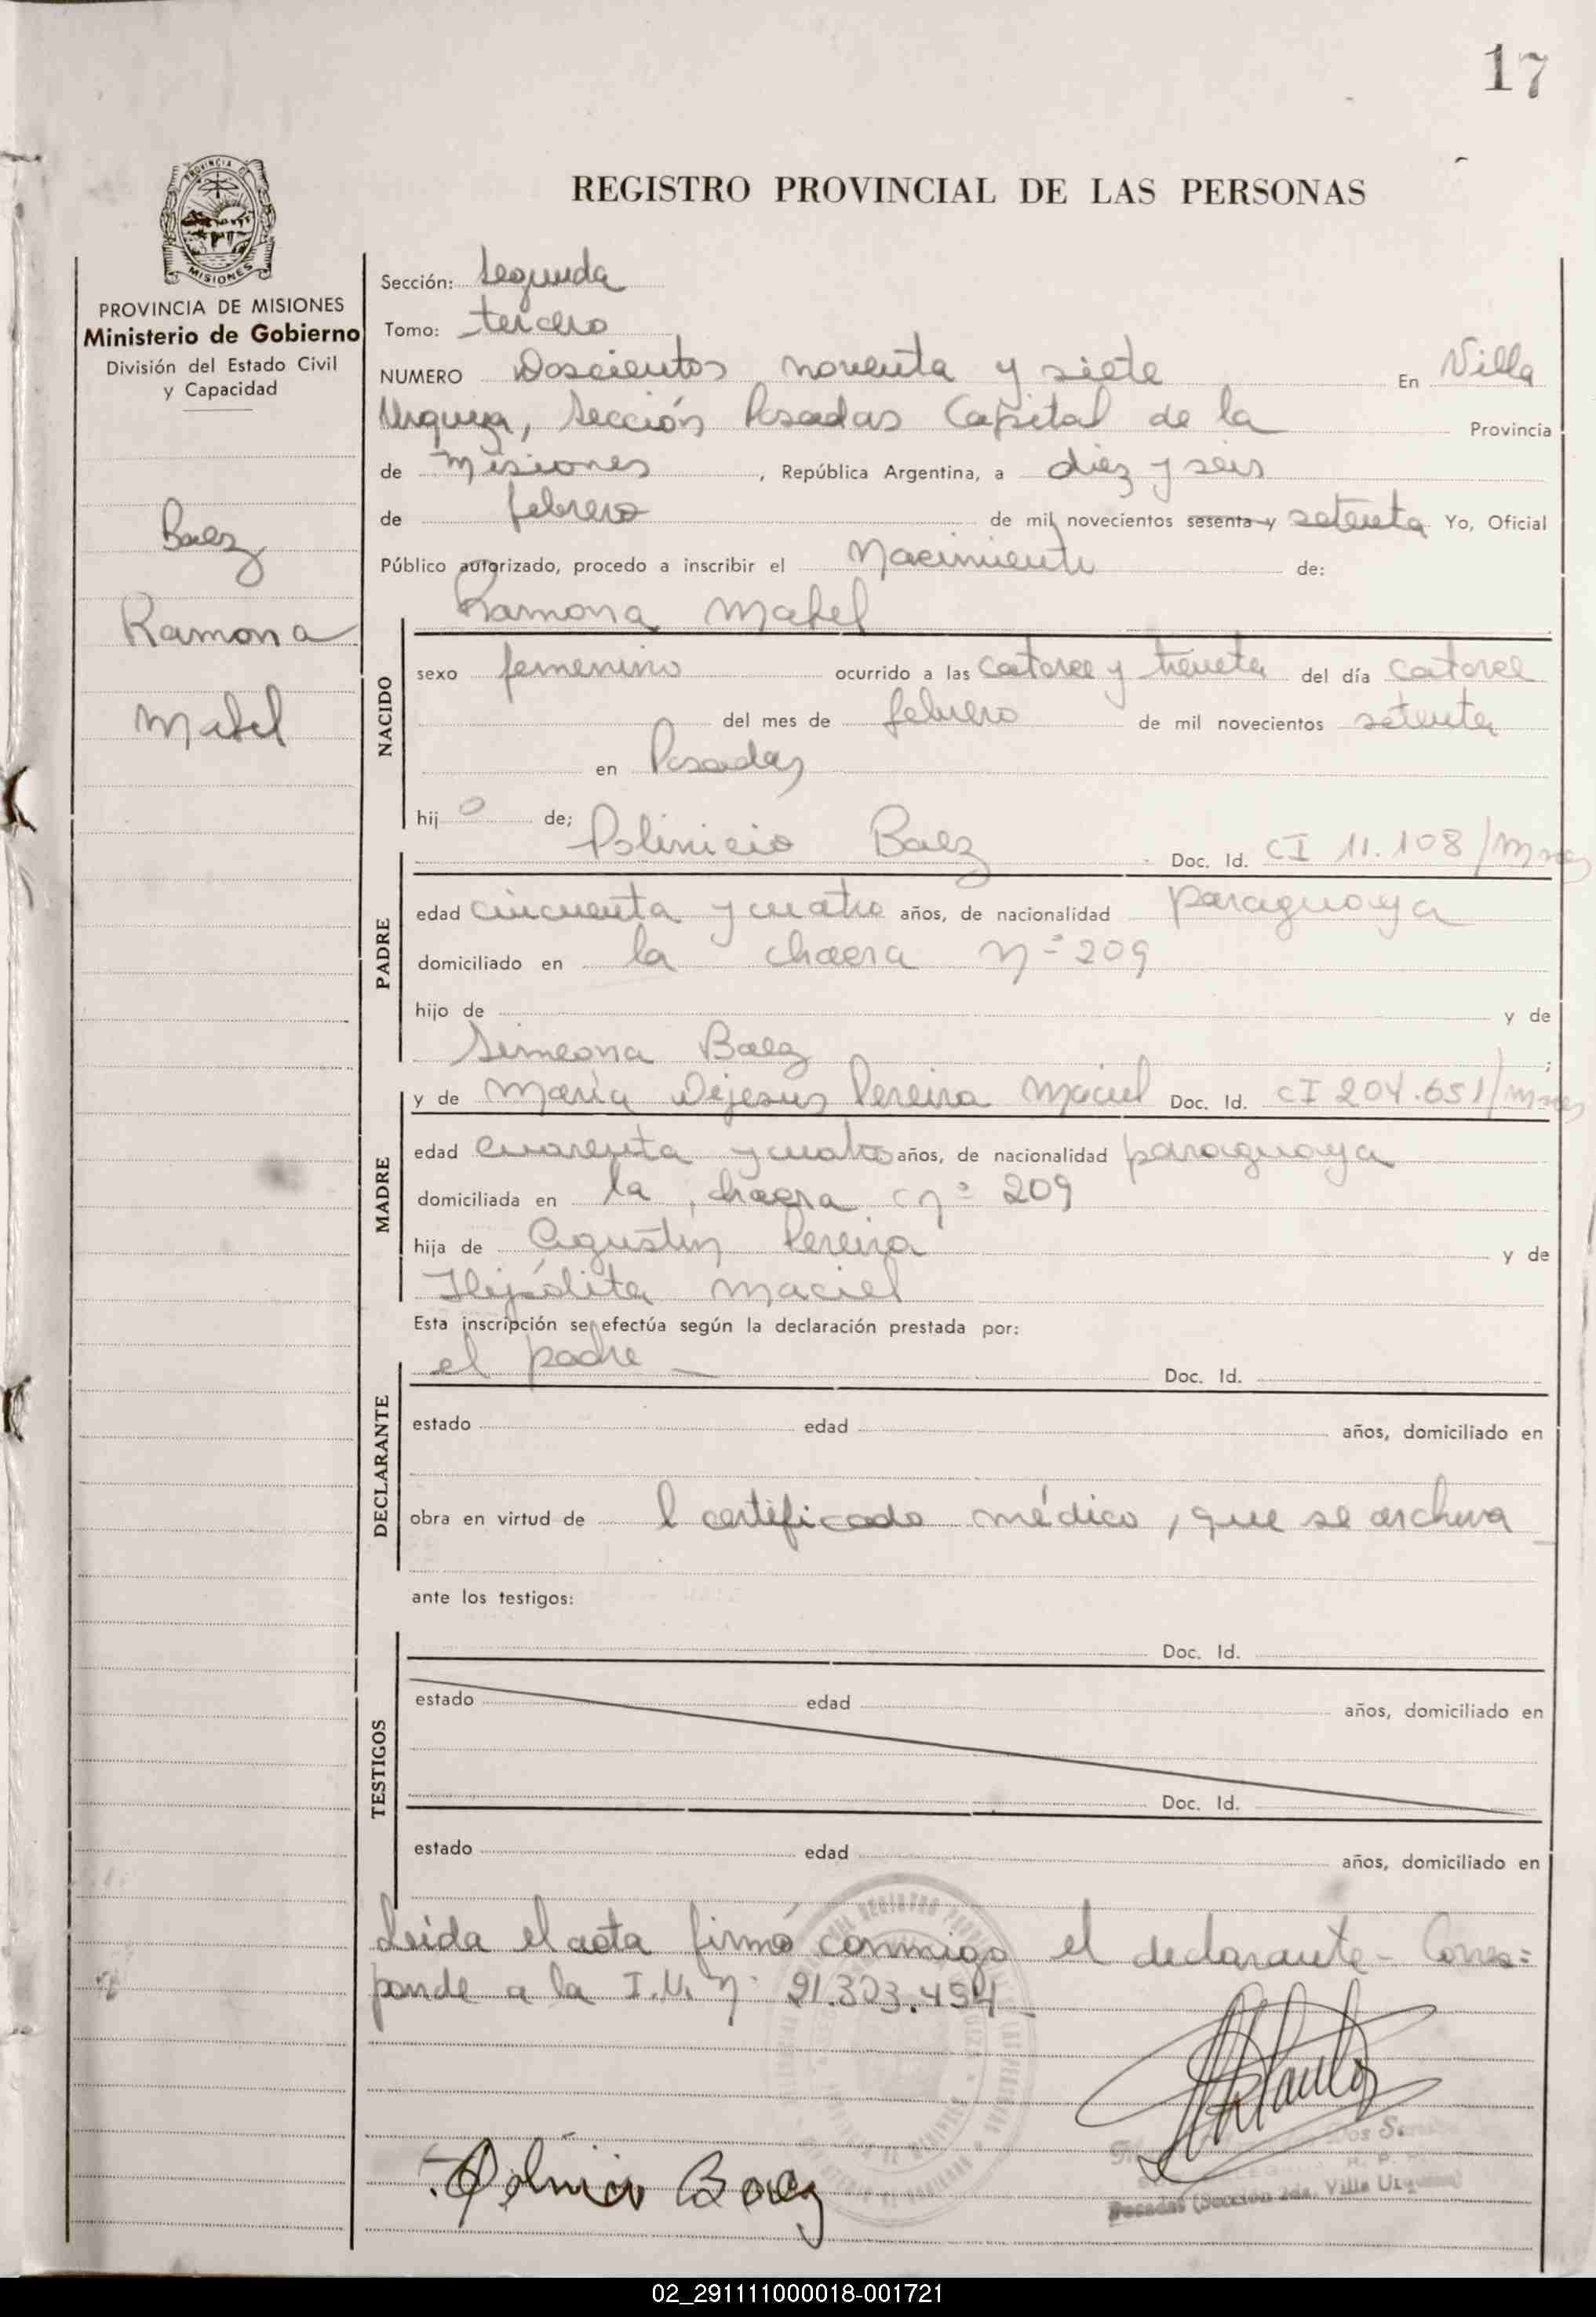 17
REGISTRO PROVINCIAL DE LAS PERSONAS
PROVINCIA DE
MISIONES
PROVINCIA DE MISIONES
Ministerio de Gobierno
División del Estado Civil
y Capacidad
Baez
Ramona
Mabel
Sección: Segunda
Tomo: tercero
NUMERO Doscientos noventa y siete En Villa
Urquiza, Sección Posadas Capital de la Provincia
de Misiones, República Argentina, a diez y seis
de febrero de mil novecientos sesenta y setenta Yo, Oficial
Público autorizado, procedo a inscribir el Nacimiento de:
Ramona Mabel
NACIDO
sexo femenino ocurrido a las catorce y treinta del día catorce
del mes de febrero de mil novecientos setenta
en Posadas
hij o de;
Polinicio Baez Doc. Id. CI 11.108/Mnes
PADRE
edad cincuenta y cuatro años, de nacionalidad paraguaya
domiciliado en la chacra nº 209
hijo de y de
Simeona Baez ;
y de María Dejesus Pereira Maciel Doc. Id. CI 204.651/Mnes
MADRE
edad cuarenta y cuatro años, de nacionalidad paraguaya
domiciliada en la chacra nº 209
hija de Agustín Pereira y de
Hipólita Maciel
Esta inscripción se efectúa según la declaración prestada por:
el padre Doc. Id.
DECLARANTE
estado edad años, domiciliado en
obra en virtud de l certificado médico, que se archiva
ante los testigos:
Doc. Id.
TESTIGOS
estado edad años, domiciliado en
Doc. Id.
estado edad años, domiciliado en
Leida el acta firmó conmigo el declarante - Corres=
ponde a la I.U. nº 21.323.454
Baez
Posadas (Sección 2da. Villa Urquiza)
02_291111000018-001721